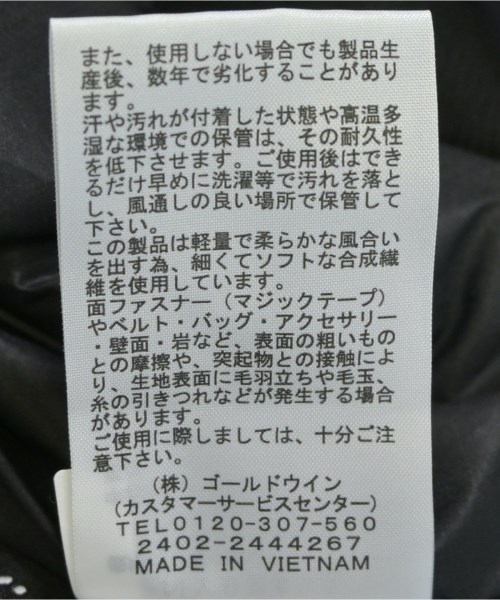 また、使用しない場合でも製品生
産後、数年で劣化することがあり
ます。
汗や汚れが付着した状態や高温多
湿な環境での保管は、その耐久性
を低下させます。ご使用後はでき
るだけ早めに洗濯等で汚れを落と
し、風通しの良い場所で保管して
下さい。
この製品は軽量で柔らかな風合い
を出す為、細くてソフトな合成繊
維を使用しています。
面ファスナー（マジックテープ）
やベルト・バッグ・アクセサリー
・壁面・岩など、表面の粗いもの
との摩擦や、突起物との接触によ
り、生地表面に毛羽立ちや毛玉、
糸の引きつれなどが発生する場合
があります。
ご使用に際しましては、十分ご注
意下さい。
（株）ゴールドウイン
（カスタマーサービスセンター）
TEL0120-307-560
2402-2444267
MADE IN VIETNAM